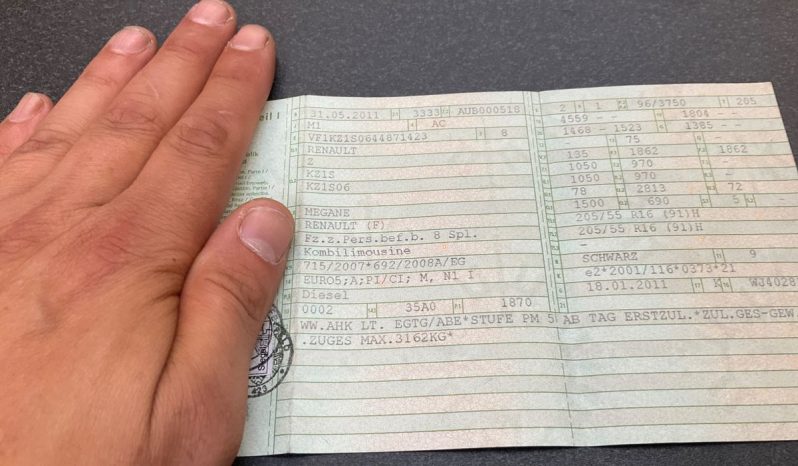 eil I
31.05.2011 3333 AUB000518
M1 AC
VF1KZ1S0644871423 8
RENAULT
Z
KZ1S
KZ1S06
MEGANE
RENAULT (F)
Fz.z.Pers.bef.b. 8 Spl.
Kombilimousine
715/2007*692/2008A/EG
EURO5;A;PI/CI; M, N1 I
Diesel
0002 35A0 1870
2 1 96/3750 205
4559 -- 1804 --
1468 -- 1523 1385 --
- 75 -
135 1862 1862
1050 970 -
1050 970 -
78 2813 72
1500 690 5 -
205/55 R16 (91)H
205/55 R16 (91)H
-
SCHWARZ 9
e2*2001/116*0373*21
18.01.2011 K WJ40287
WW.AHK LT. EGTG/ABE*STUFE PM 5 AB TAG ERSTZUL.*ZUL.GES-GEW
.ZUGES MAX.3162KG*